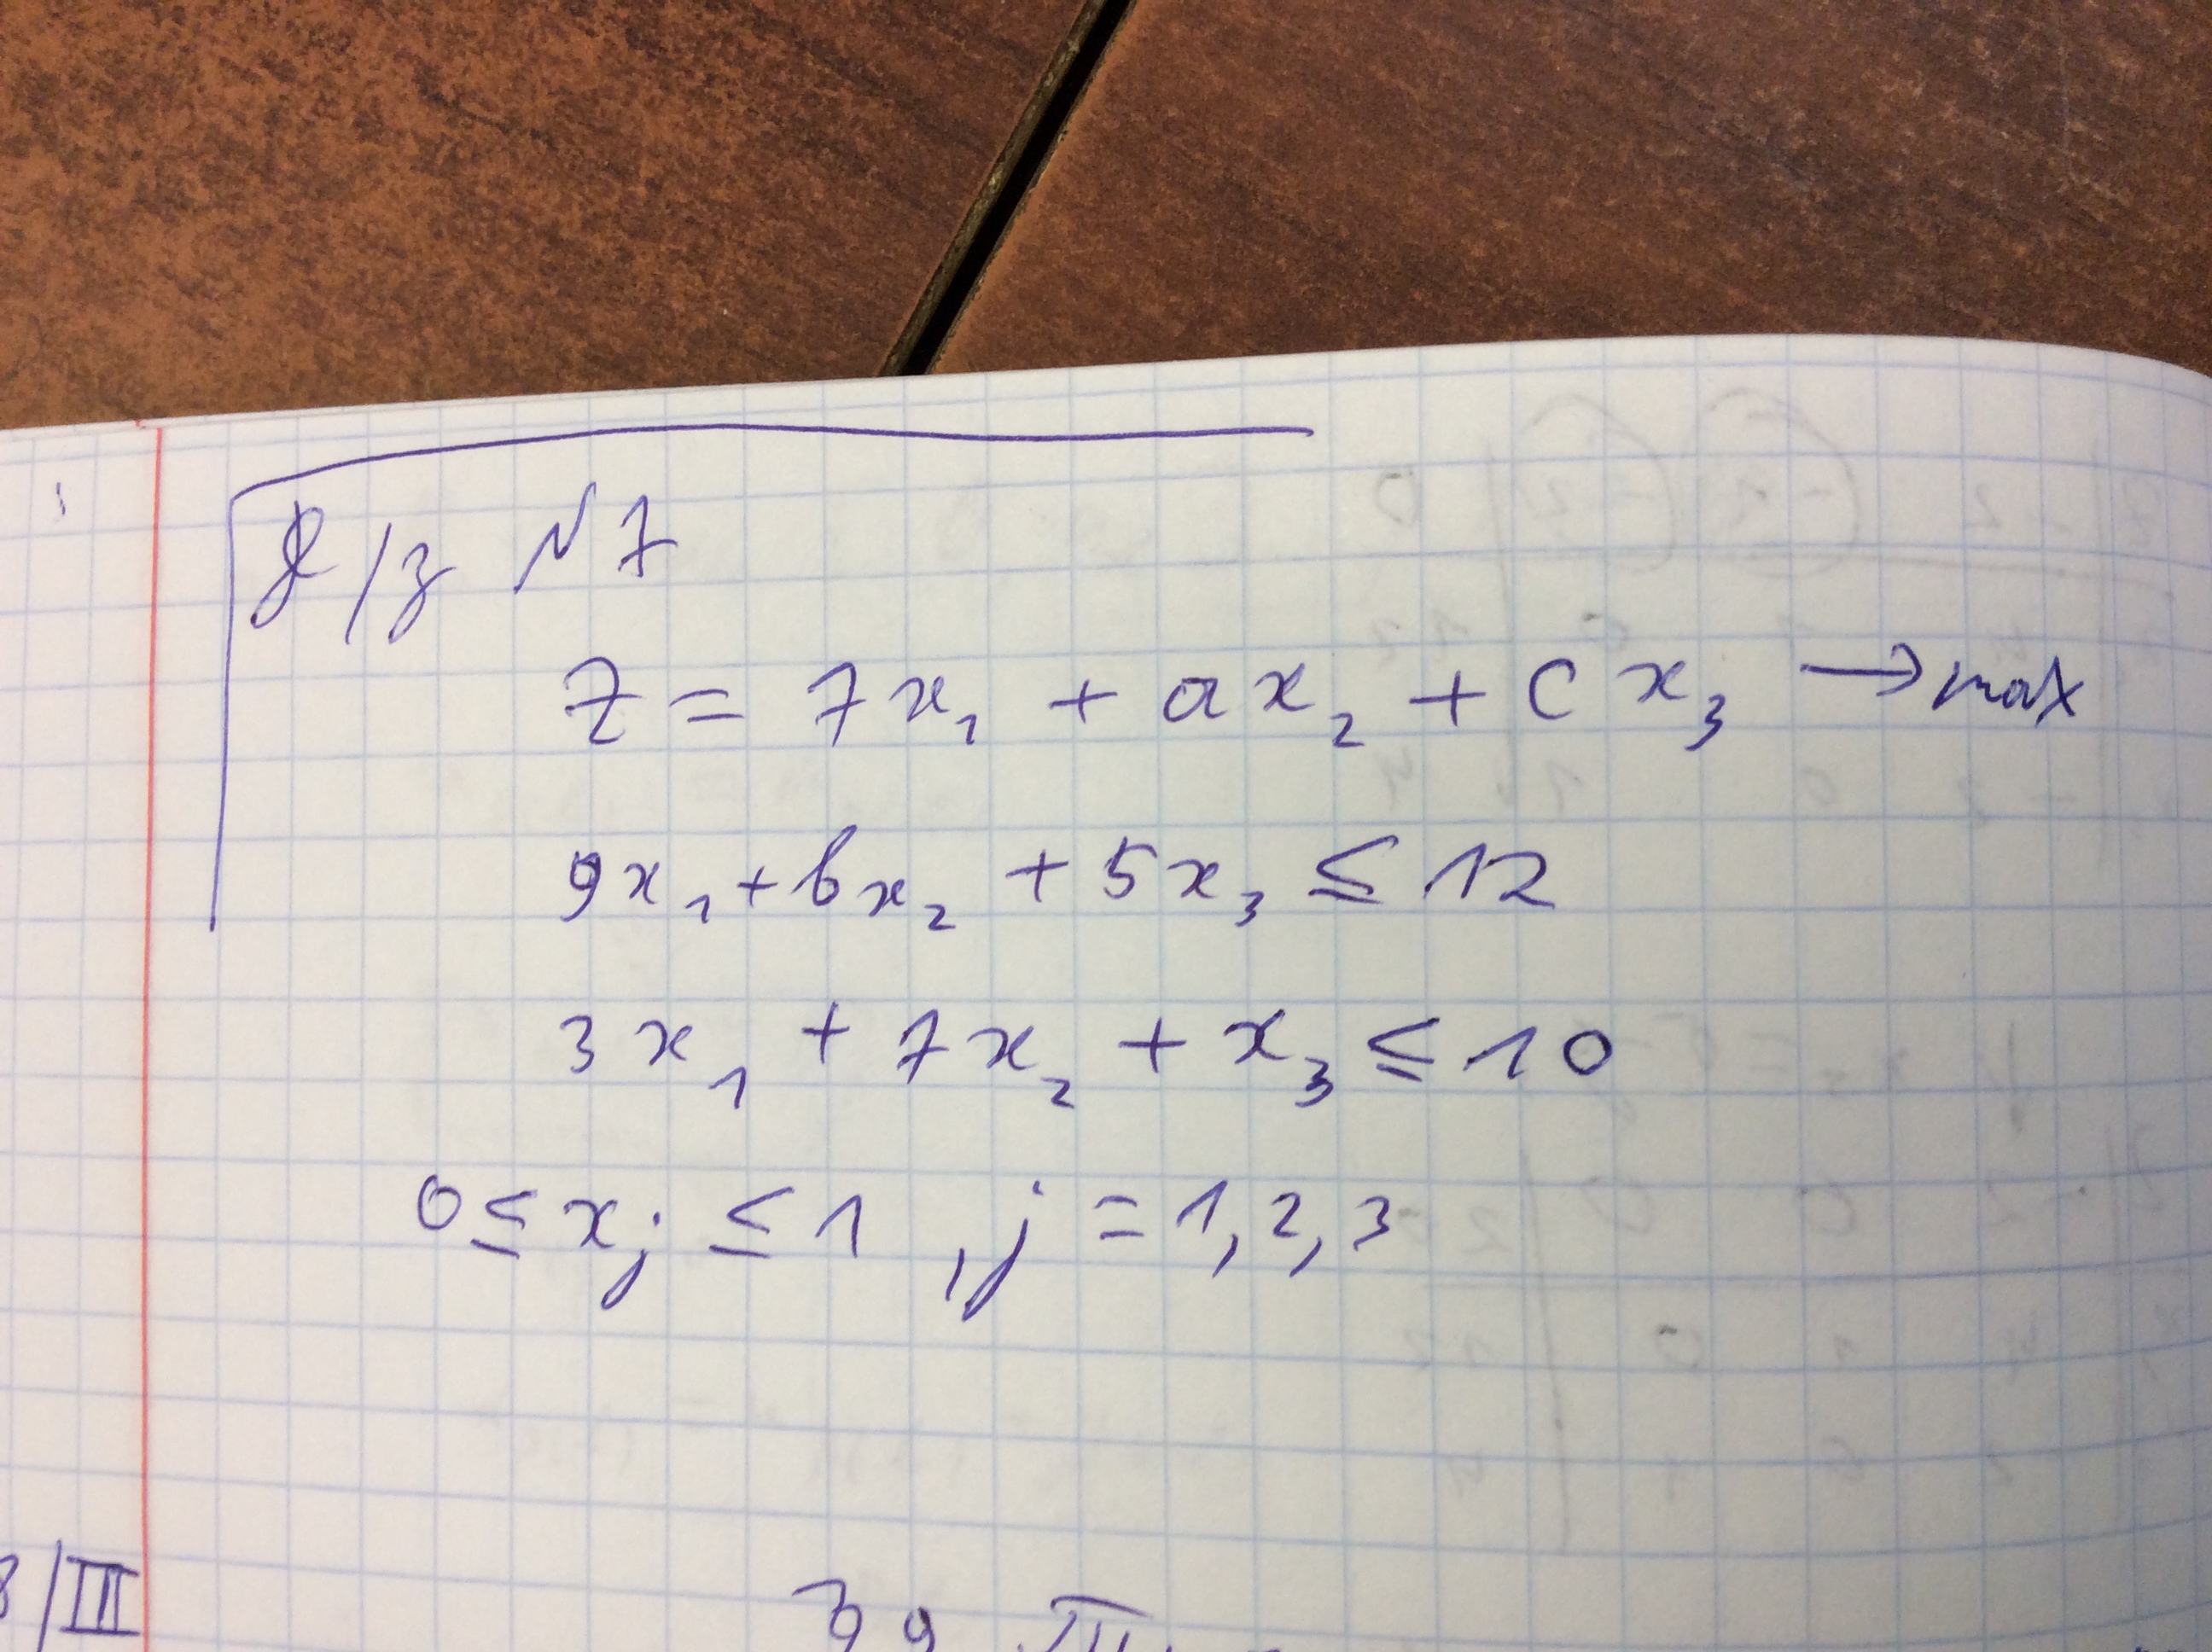 д/з N 7
Z = 7x₁ + ax₂ + cx₃ → max
9x₁ + bx₂ + 5x₃ ≤ 12
3x₁ + 7x₂ + x₃ ≤ 10
0 ≤ xⱼ ≤ 1 , j = 1, 2, 3
/III